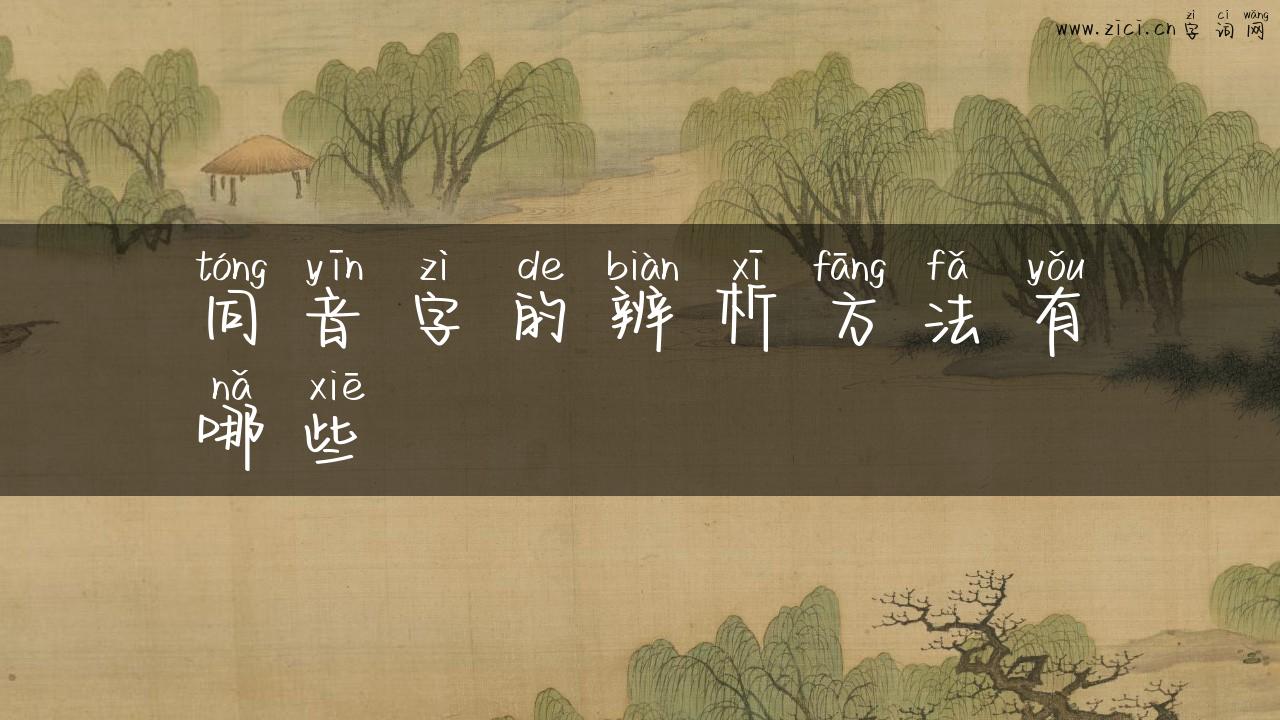 zì cí wǎng
www.zici.cn 字词网
tóng yīn zì de biàn xī fāng fǎ yǒu
同音字的辨析方法有
nǎ xiē
哪些